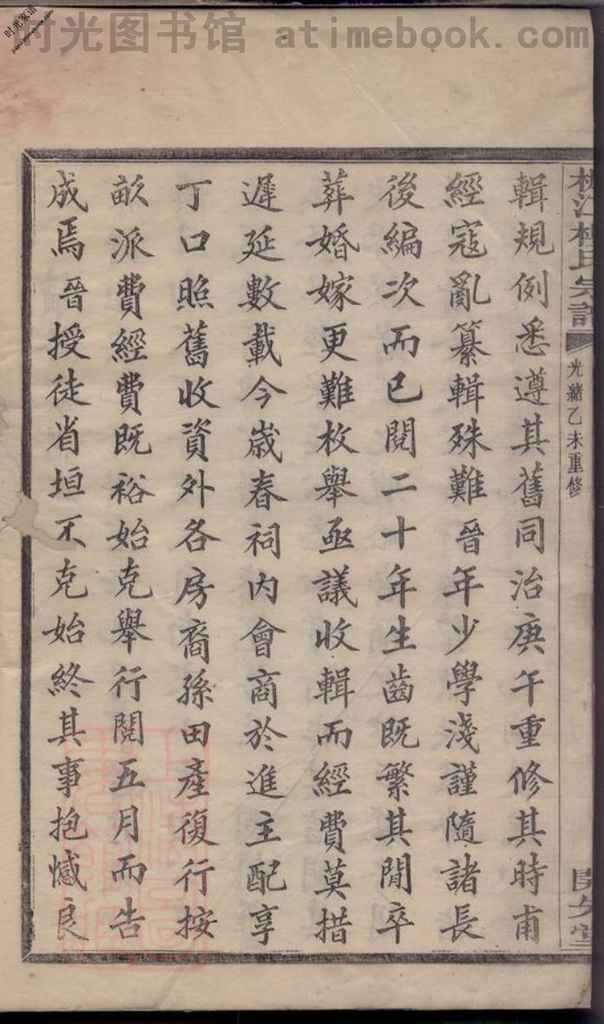 时光图书馆 atimebook.com
江杜氏宗譜
光緒乙未重修
輯規例悉遵其舊同治庚午重修其時甫
經寇亂纂輯殊難晉年少學淺謹隨諸長
後編次而已閱二十年生齒既繁其間卒
葬婚嫁更難枚舉亟議收輯而經費莫措
遲延數載今歲春祠內會商於進主配享
丁口照舊收資外各房裔孫田產復行按
畝派費經費既裕始克舉行閱五月而告
成焉晉授徒省垣不克始終其事抱憾良